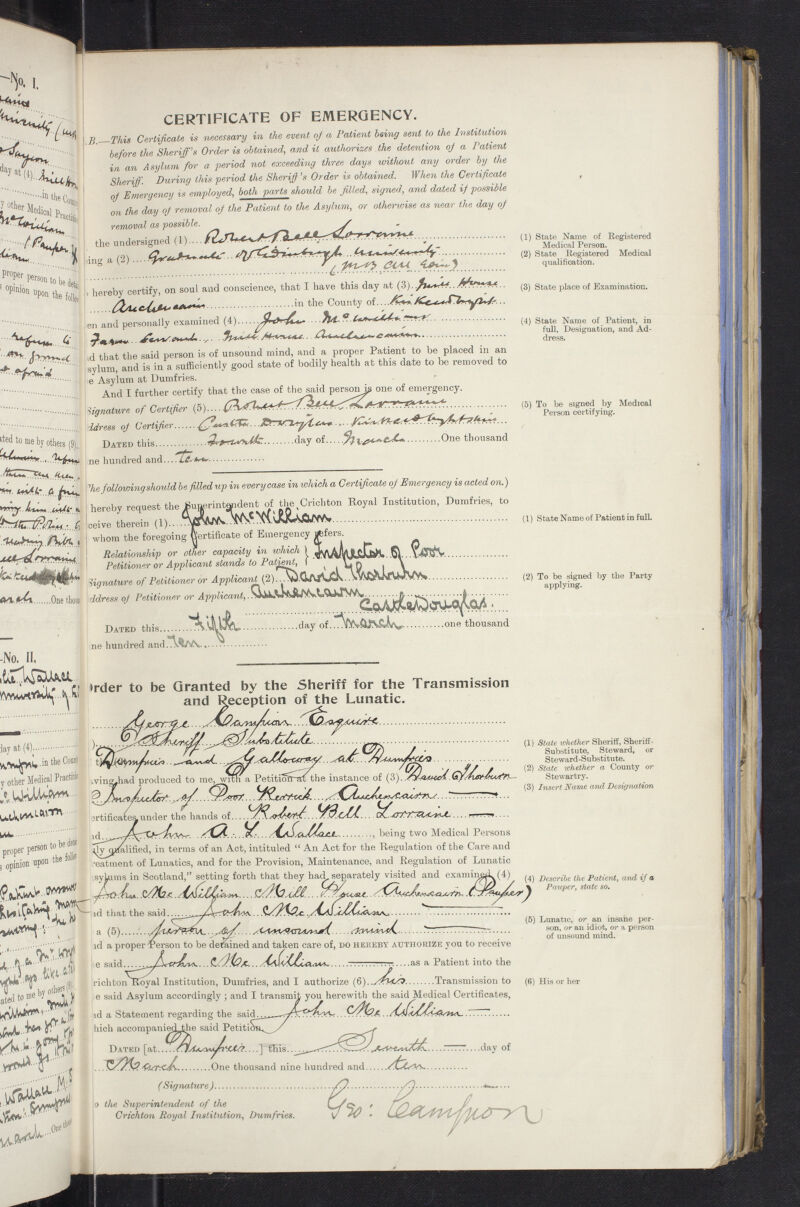 No. I.
CERTIFICATE OF EMERGENCY.
B.—This Certificate is necessary in the event of a Patient being sent to the Institution
before the Sheriff's Order is obtained, and it authorizes the detention of a Patient
in an Asylum for a period not exceeding three days without any order by the
Sheriff. During this period the Sheriff's Order is obtained. When the Certificate
of Emergency is employed, both parts should be filled, signed, and dated if possible
on the day of removal of the Patient to the Asylum, or otherwise as near the day of
removal as possible.
the undersigned (1) Robert Bell Lorraine
(1) State Name of Registered
Medical Person.
ing a (2) Graduate of Edinburgh University
(2) State Registered Medical
qualification.
hereby certify, on soul and conscience, that I have this day at (3) Mill House
(3) State place of Examination.
Auchencairn in the County of Kirkcudbright
en and personally examined (4) John McWilliam
(4) State Name of Patient, in
full, Designation, and Ad-
dress.
Farm Servant, Mill House Auchencairn
d that the said person is of unsound mind, and a proper Patient to be placed in an
sylum, and is in a sufficiently good state of bodily health at this date to be removed to
e Asylum at Dumfries.
And I further certify that the case of the said person is one of emergency.
Signature of Certifier (5) Robert Bell Lorraine
(5) To be signed by Medical
Person certifying.
ddress of Certifier Castle Douglas Kirkcudbrightshire
DATED this Fourth day of March One thousand
ne hundred and ten
The following should be filled up in every case in which a Certificate of Emergency is acted on.)
hereby request the Superintendent of the Crichton Royal Institution, Dumfries, to
ceive therein (1) John McWilliam
(1) State Name of Patient in full.
whom the foregoing Certificate of Emergency refers.
Relationship or other capacity in which
Petitioner or Applicant stands to Patient, } Inspector of Poor
Signature of Petitioner or Applicant (2) David Thorburn
(2) To be signed by the Party
applying.
ddress of Petitioner or Applicant, Auchencairn
Castle Douglas.
DATED this Fifth day of March one thousand
ne hundred and Ten
Order to be Granted by the Sheriff for the Transmission
and Reception of the Lunatic.
George Campion Esquire
Sheriff Substitute
(1) State whether Sheriff, Sheriff-
Substitute, Steward, or
Steward-Substitute.
Dumfries and Galloway at Dumfries
(2) State whether a County or
Stewartry.
ving had produced to me, with a Petition at the instance of (3) David Thorburn
(3) Insert Name and Designation
Inspector of Poor Rerrick Auchencairn —
ertificates under the hands of Robert Bell Lorraine —
d John A. L. Wallace, being two Medical Persons
ly qualified, in terms of an Act, intituled "An Act for the Regulation of the Care and
reatment of Lunatics, and for the Provision, Maintenance, and Regulation of Lunatic
sylums in Scotland," setting forth that they had separately visited and examined (4)
John Mc William Mill House Auchencairn (Pauper)
(4) Describe the Patient, and if a
Pauper, state so.
d that the said John Mc William —
a (5) person of unsound mind —
(5) Lunatic, or an insane per-
son, or an idiot, or a person
of unsound mind.
d a proper Person to be detained and taken care of, DO HEREBY AUTHORIZE you to receive
e said John Mc William — as a Patient into the
richton Royal Institution, Dumfries, and I authorize (6) his Transmission to
(6) His or her
e said Asylum accordingly; and I transmit you herewith the said Medical Certificates,
d a Statement regarding the said John Mc William —
hich accompanied the said Petition.
DATED [at Dumfries] this Seventh — day of
March One thousand nine hundred and ten
(Signature)
the Superintendent of the
Crichton Royal Institution, Dumfries.
Geo: Campion
No. II.